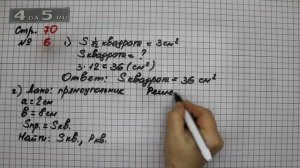 4DA5.RU
Стр. 70
№ 6 1) S 1/12 квадрата = 3 см²
S квадрата = ?
3 · 12 = 36 (см²)
Ответ: S квадрата = 36 см²
2) Дано: прямоугольник Реше
a = 2 см
b = 8 см
Sпр. = Sкв.
Найти: Sкв., Pкв.